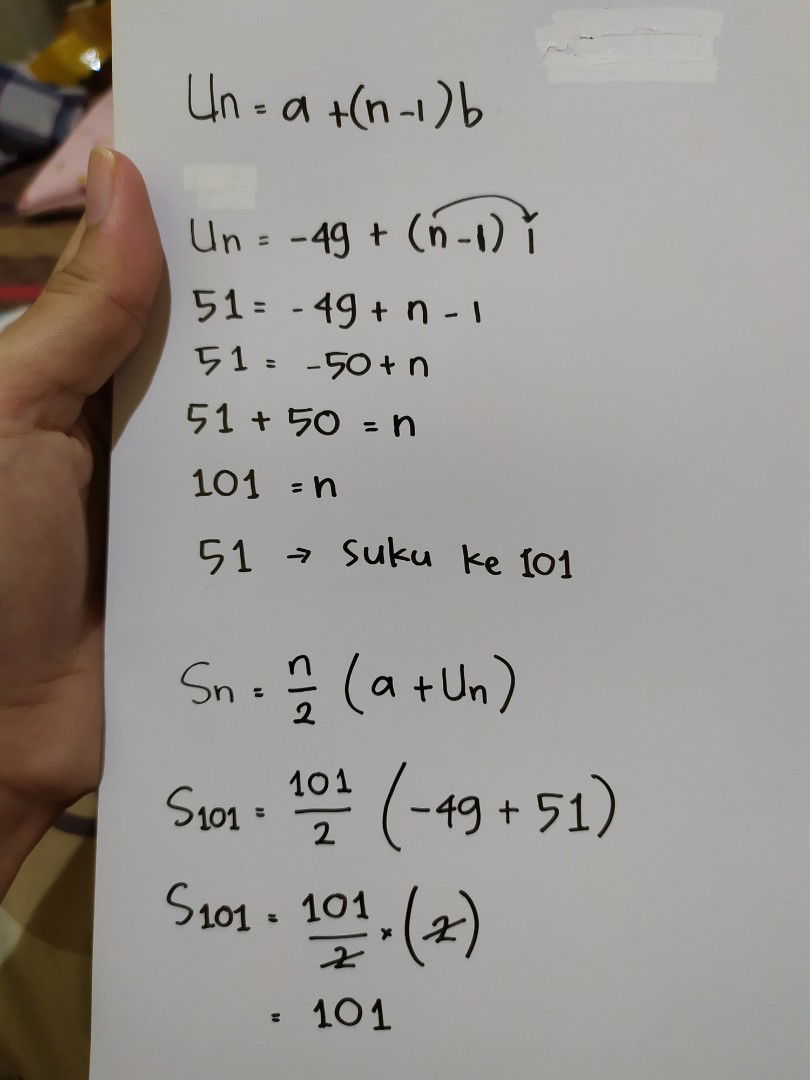 Un = a + (n-1) b
Un = -49 + (n-1) 1
51 = -49 + n - 1
51 = -50 + n
51 + 50 = n
101 = n
51 → Suku ke 101
Sn = n/2 (a + Un)
S101 = 101/2 (-49 + 51)
S101 = 101/2 × (2)
= 101